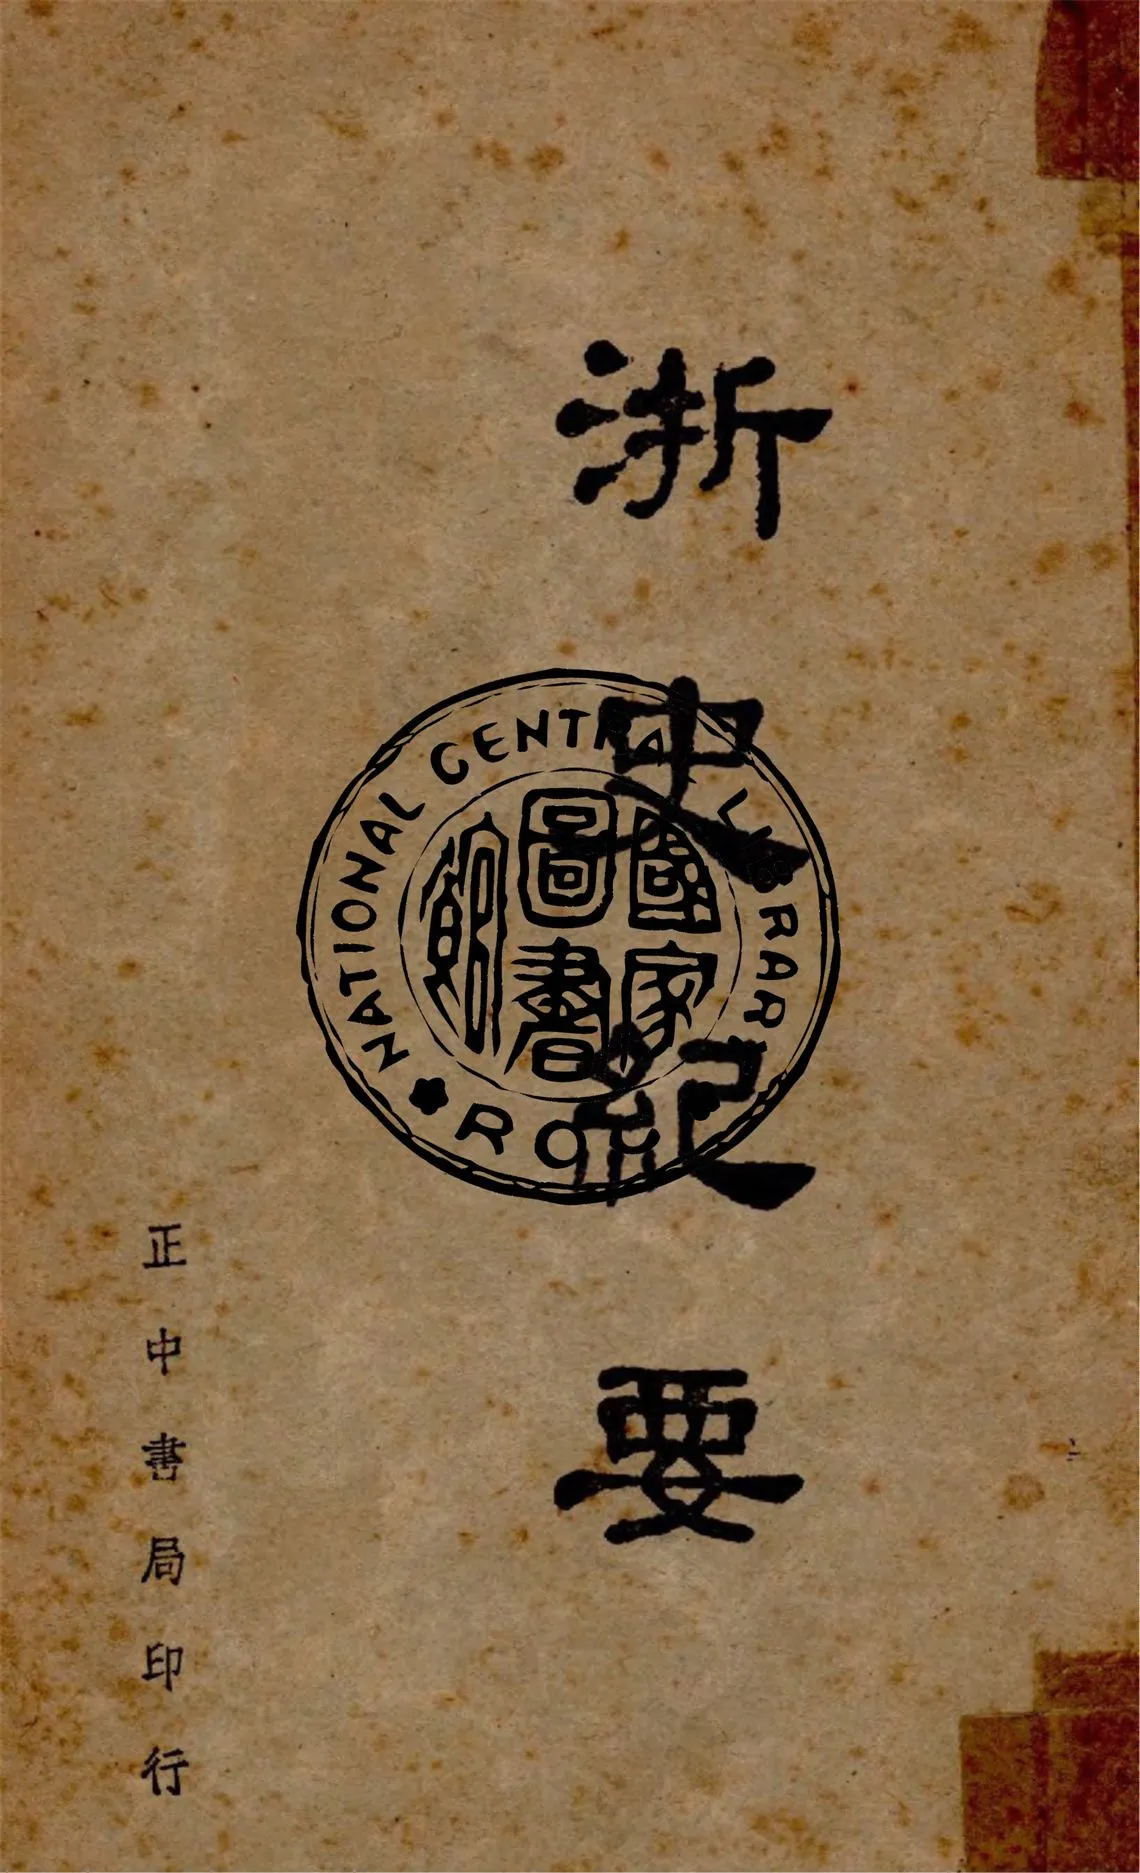 浙史紀要
正中書局印行
NATIONAL CENTRAL LIBRARY
國家
圖書
館
R.O.C.